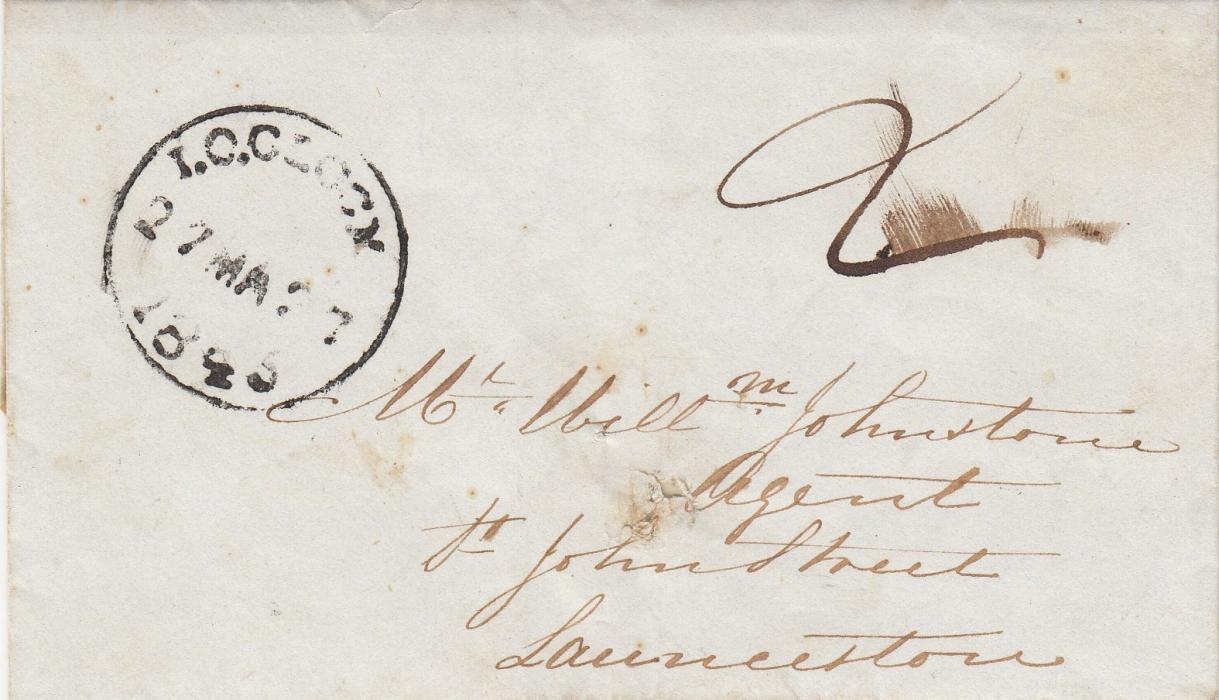 1.O.CLOCK
27 MA ? 7
1843
2
Mr. Willm Johnstone
Agent
St John Street
Launceston